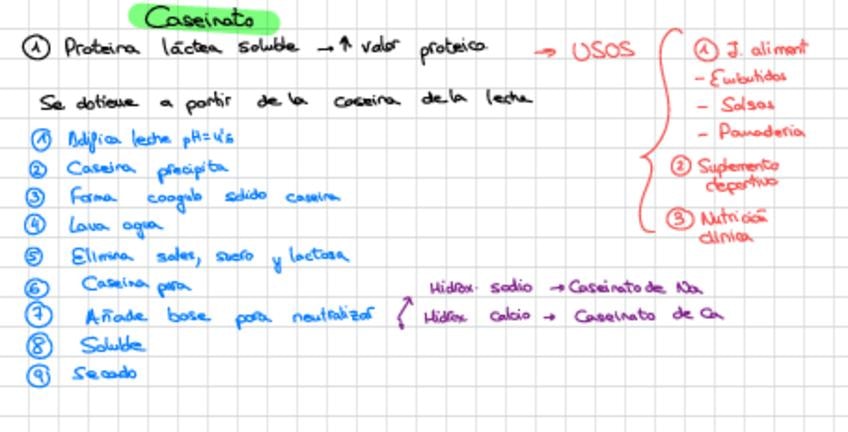 Caseinato
① Proteina láctea soluble → ↑ valor proteico → USOS
Se obtiene a partir de la caseina de la leche
① Adifica leche pH=4'6
② Caseina precipita
③ Forma coagulo solido caseina
④ Lava agua
⑤ Elimina sales, suero y lactosa
⑥ Caseina pura
⑦ Añade base para neutralizar
Hidrox. sodio → Caseinato de Na
Hidrox calcio → Caseinato de Ca
⑧ Soluble
⑨ Secado
① I. aliment
- Embutidos
- Salsas
- Panaderia
② Suplemento
deportivo
③ Nutrición
clinica